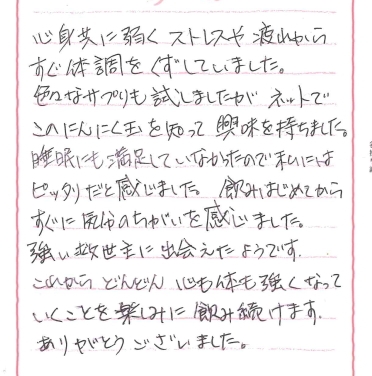 心身共に弱く ストレスや 疲れから
すぐ体調をくずしていました。
色々なサプリも試しましたが ネットで
このにんにく玉を知って 興味を持ちました。
睡眠にも満足していなかったので私には
ピッタリだと感じました。 飲みはじめてから
すぐに気分のちがいを感じました。
強い救世主に出会えたようです。
これから どんどん 心も体も強くなって
いくことを楽しみに 飲み続けます。
ありがとう ございました。